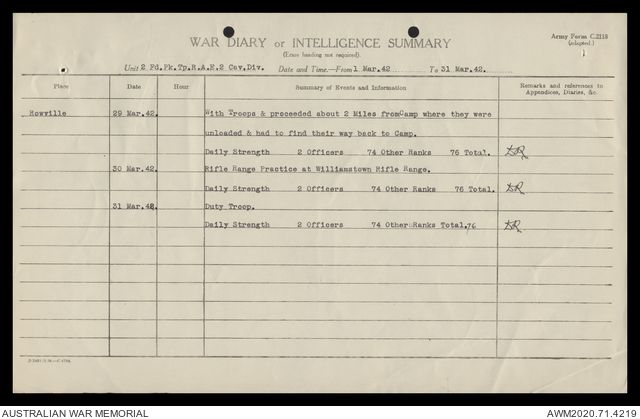 WAR DIARY or INTELLIGENCE SUMMARY
(Erase heading not required).
Army Form C.2118
(adapted.)
1
Unit 2 Fd.Pk.Tp.R.A.E.2 Cav.Div. Date and Time.—From 1 Mar.42 To 31 Mar.42.
Place Date Hour Summary of Events and Information Remarks and references to Appendices, Diaries, &c.
Rowville 29 Mar.42. With Troops & proceeded about 2 Miles fromCamp where they were
unloaded & had to find their way back to Camp.
Daily Strength 2 Officers 74 Other Ranks 76 Total.
30 Mar.42. Rifle Range Practice at Williamstown Rifle Range.
Daily Strength 2 Officers 74 Other Ranks 76 Total.
31 Mar.42. Duty Troop.
Daily Strength 2 Officers 74 Other Ranks Total.76
AUSTRALIAN WAR MEMORIAL AWM2020.71.4219